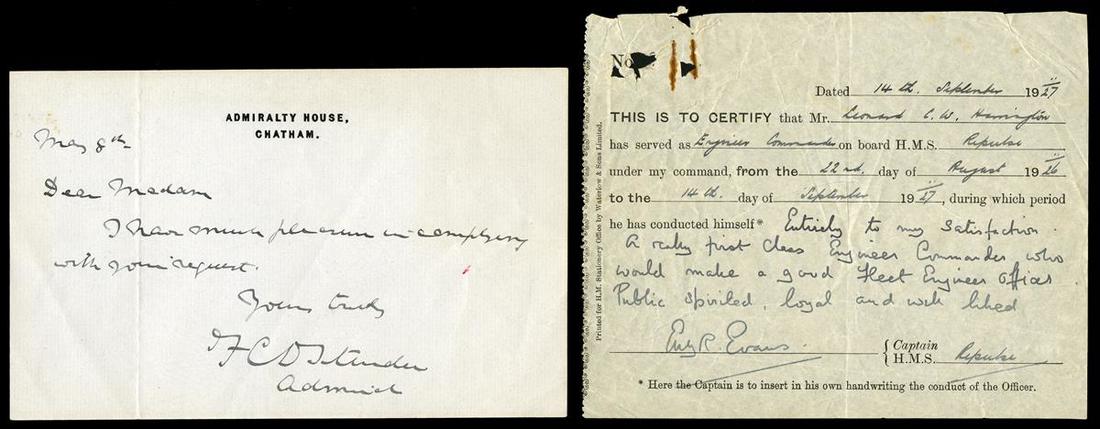 ADMIRALTY HOUSE,
CHATHAM.
May 8th
Dear Madam
I have much pleasure in complying
with your request.
Yours truly
Admiral
No
Dated 14th. September 1927
THIS IS TO CERTIFY that Mr. Leonard C. W. Harrington
has served as Engineer Commander on board H.M.S. Repulse
under my command, from the 22nd. day of August 1926
to the 14th. day of September 1927, during which period
he has conducted himself* Entirely to my Satisfaction.
A really first Class Engineer Commander who
would make a good Fleet Engineer Officer
Public Spirited, loyal and well liked
R. Evans. Captain
H.M.S. Repulse
* Here the Captain is to insert in his own handwriting the conduct of the Officer.
Printed for H.M. Stationery Office by Waterlow & Sons Limited.